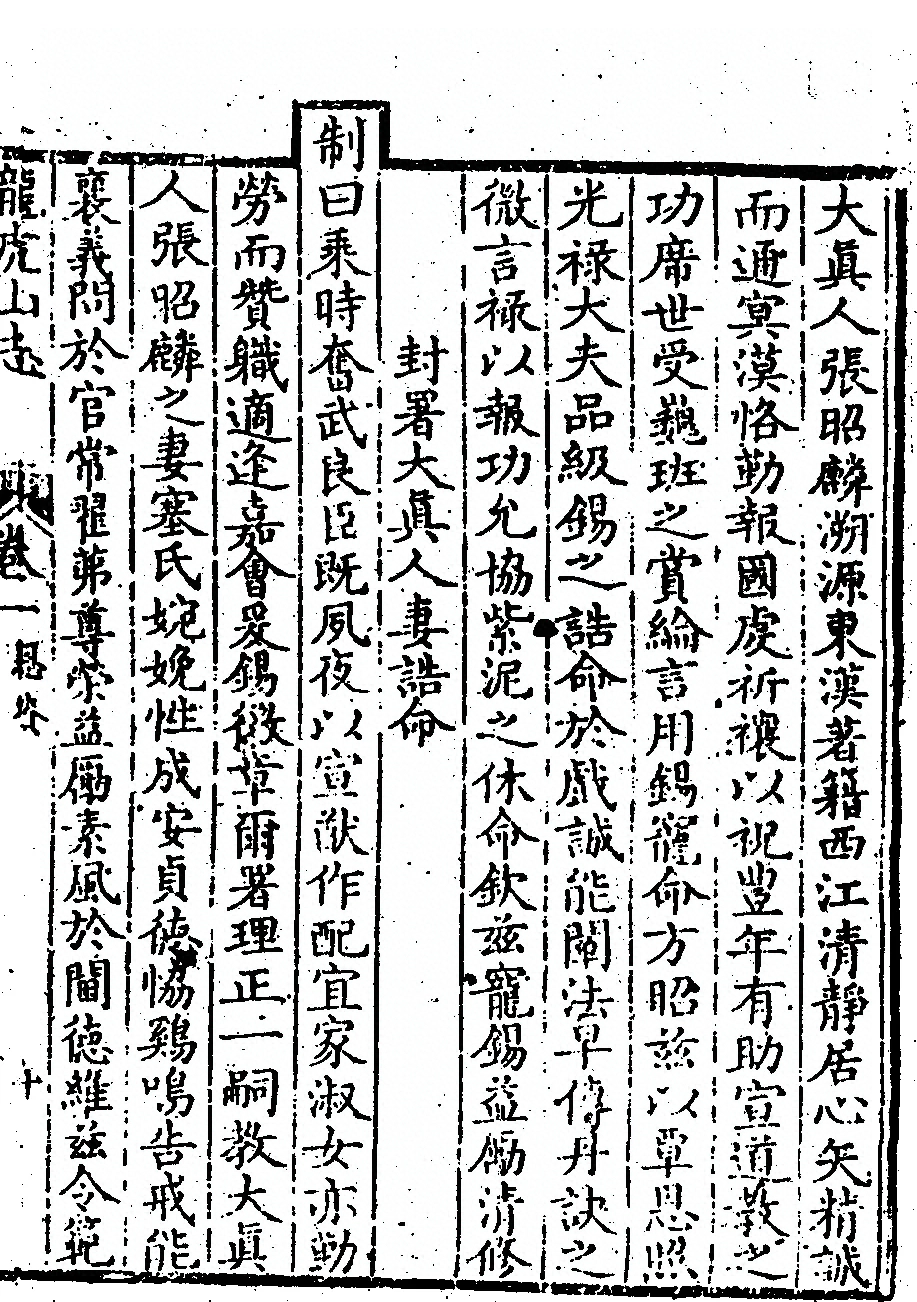 大眞人張昭麟溯源東漢著籍西江清靜居心矢精誠
而通冥漠恪勤報國虔祈禳以祝豐年有助宣道敎之
功席世受巍班之賞綸言用錫寵命方昭玆以覃恩照
光祿大夫品級錫之誥命於戲誠能闡法早傳丹訣之
微言祿以報功允協紫泥之休命欽玆寵錫益勵清修
封署大眞人妻誥命
制曰乘時奮武良臣旣夙夜以宣猷作配宜家淑女亦勤
勞而贊職適逢嘉會爰錫徽章爾署理正一嗣教大眞
人張昭麟之妻塞氏婉娩性成安貞德恊鷄鳴吿戒能
襄義問於官常翟茀尊榮益勵素風於閫德維玆令範
龍虎山志 卷一 十